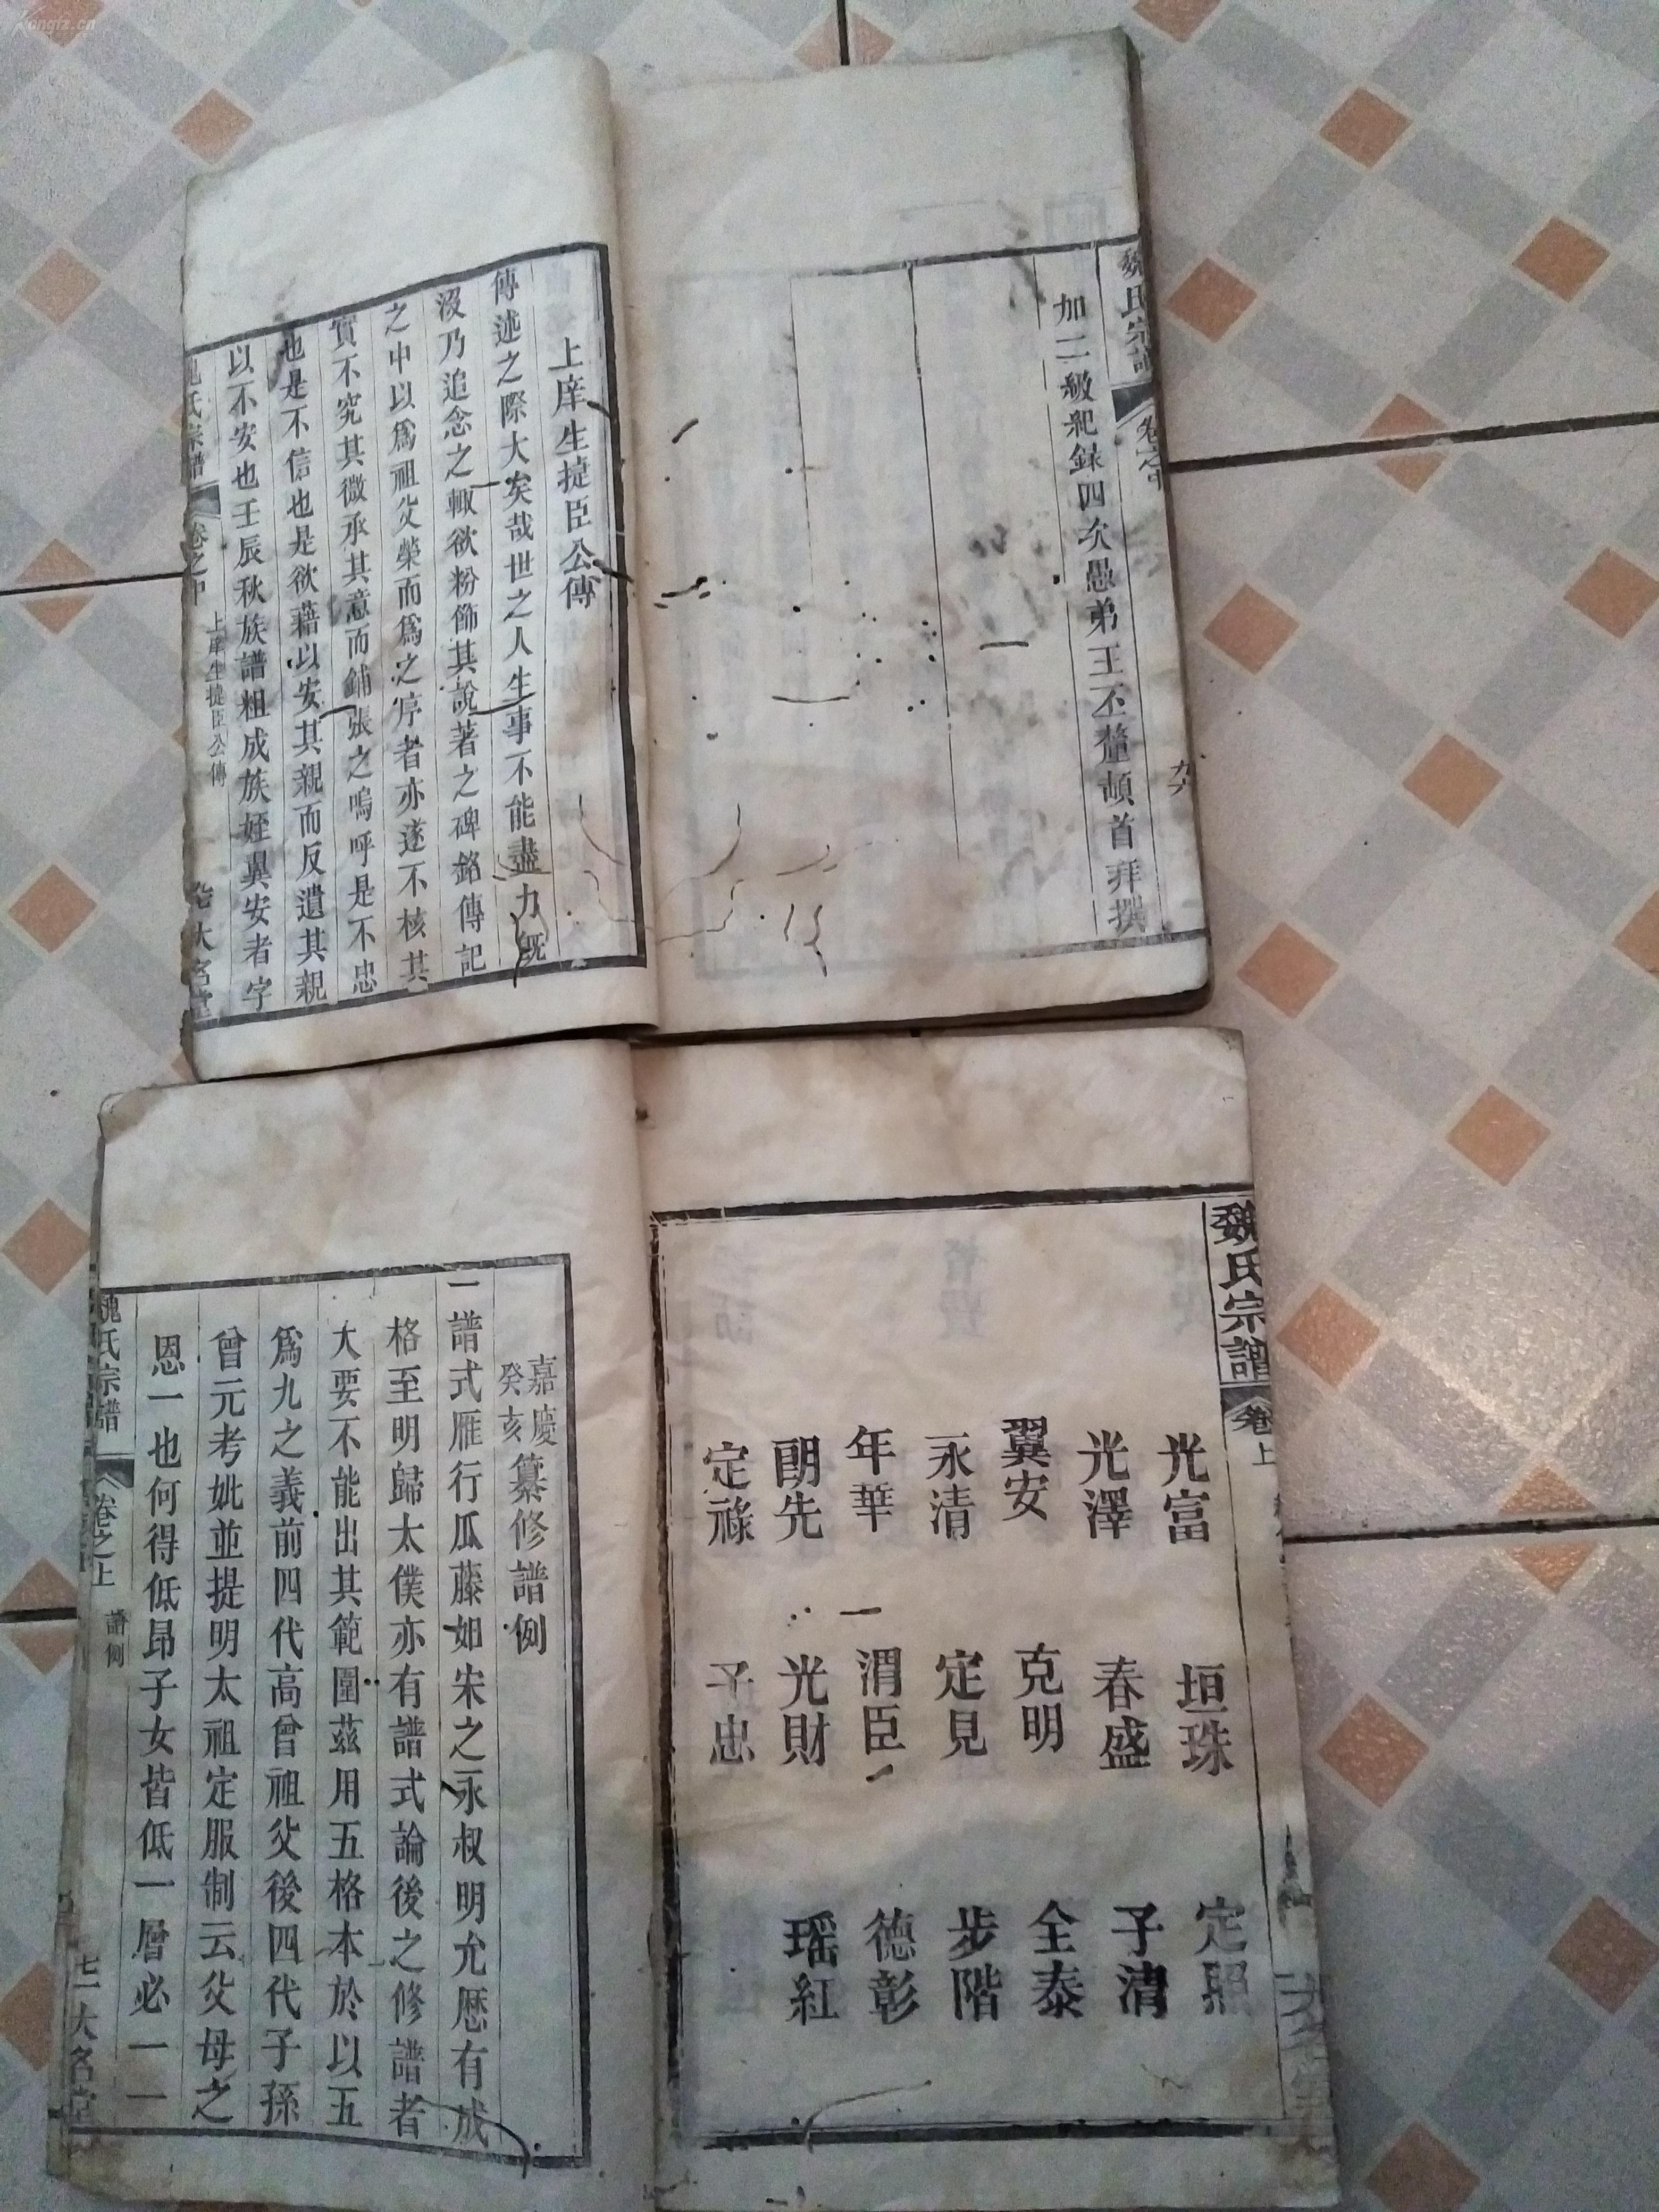 Kongfz.cn
魏氏宗譜
卷之中
九六
加二級紀錄四次愚弟王丕釐頓首拜撰
上庠生捷臣公傳
傳述之際大矣哉世之人生事不能盡力既
沒乃追念之輙欲粉飾其說著之碑銘傳記
之中以爲祖父榮而爲之序者亦遂不核其
實不究其微承其意而鋪張之嗚呼是不忠
也是不信也是欲藉以安其親而反遺其親
以不安也壬辰秋族譜粗成族姪巽安者字
氏宗譜
卷之中
上庠生捷臣公傳
大名堂
魏氏宗譜
卷上
光富
垣珠
定照
光澤
春盛
子清
翼安
克明
全泰
永清
定見
步階
年華
渭臣
德彰
朗先
光財
瑤紅
定祿
忠
嘉慶癸亥纂修譜例
一譜式雁行瓜藤如宋之永叔明允厯有成
格至明歸太僕亦有譜式論後之修譜者
大要不能出其範圍茲用五格本於以五
爲九之義前四代高曾祖父後四代子孫
曾元考妣並提明太祖定服制云父母之
恩一也何得低昻子女皆低一層必一一
魏氏宗譜
卷之上
譜例
七一大名堂